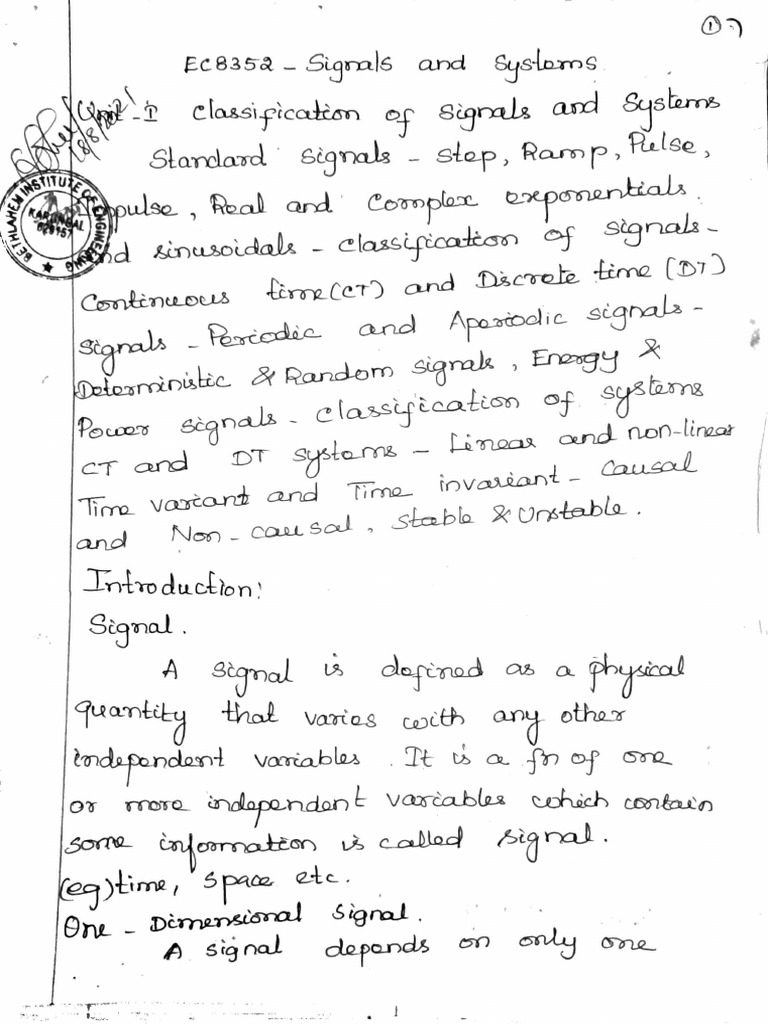 1
EC8352 - Signals and Systems
Unit - I Classification of Signals and Systems
Standard signals - Step, Ramp, Pulse,
Impulse, Real and Complex exponentials
and sinusoidals - classification of signals -
Continuous time (CT) and Discrete time (DT)
signals - Periodic and Aperiodic signals -
Deterministic & Random signals, Energy &
Power signals - classification of systems
CT and DT systems - Linear and non-linear
Time variant and Time invariant - Causal
and Non-causal, Stable & Unstable.
BETHLAHEM INSTITUTE OF ENGINEERING
KARUNGAL
629157
Introduction:
Signal.
A signal is defined as a physical
quantity that varies with any other
independent variables. It is a fn of one
or more independent variables which contain
some information is called signal.
(eg) time, space etc.
One - Dimensional signal.
A signal depends on only one
1